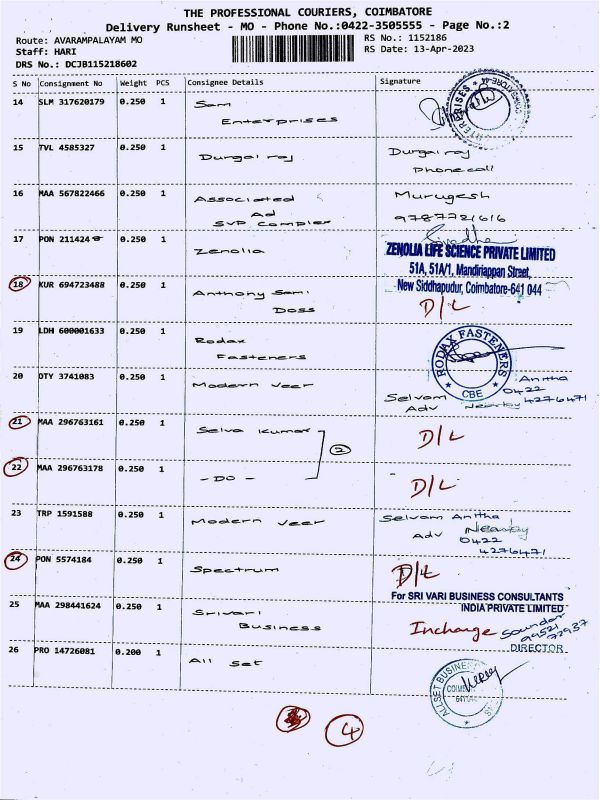 THE PROFESSIONAL COURIERS, COIMBATORE
Delivery Runsheet - MO - Phone No.:0422-3505555 - Page No.:2
Route: AVARAMPALAYAM MO
RS No.: 1152186
Staff: HARI
RS Date: 13-Apr-2023
DRS No.: DCJB115218602
S No Consignment No Weight PCS Consignee Details Signature
14 SLM 317620179 0.250 1 Sam
Enterprises
15 TVL 4585327 0.250 1 Durgai raj Durgai raj
Phone call
16 MAA 567822466 0.250 1 Associated Murugesh
Ad
SVP Complex 9787721616
17 PON 211424 0.250 1 Zenolia
ZENOLIA LIFE SCIENCE PRIVATE LIMITED
51A, 51A/1, Mandiriappan Street,
New Siddhapudur, Coimbatore-641 044
18 KUR 694723488 0.250 1 Anthony Sami D/L
Doss
19 LDH 600001633 0.250 1 Rodax
Fasteners
RODAX FASTENERS
CBE
20 OTY 3741083 0.250 1 Modern Veer Selvam Anitha
Adv Nearby 0422
4276471
21 MAA 296763161 0.250 1 Selva Kumar D/L
2
22 MAA 296763178 0.250 1 - DO - D/L
23 TRP 1591588 0.250 1 Modern Veer Selvam Anitha
Adv Nearby
0422
4276471
24 PON 5574184 0.250 1 Spectrum D/L
For SRI VARI BUSINESS CONSULTANTS
INDIA PRIVATE LIMITED
25 MAA 298441624 0.250 1 Srivari Incharge Soundar
Business 99521
72937
DIRECTOR
26 PRO 14726081 0.200 1 All Set
4